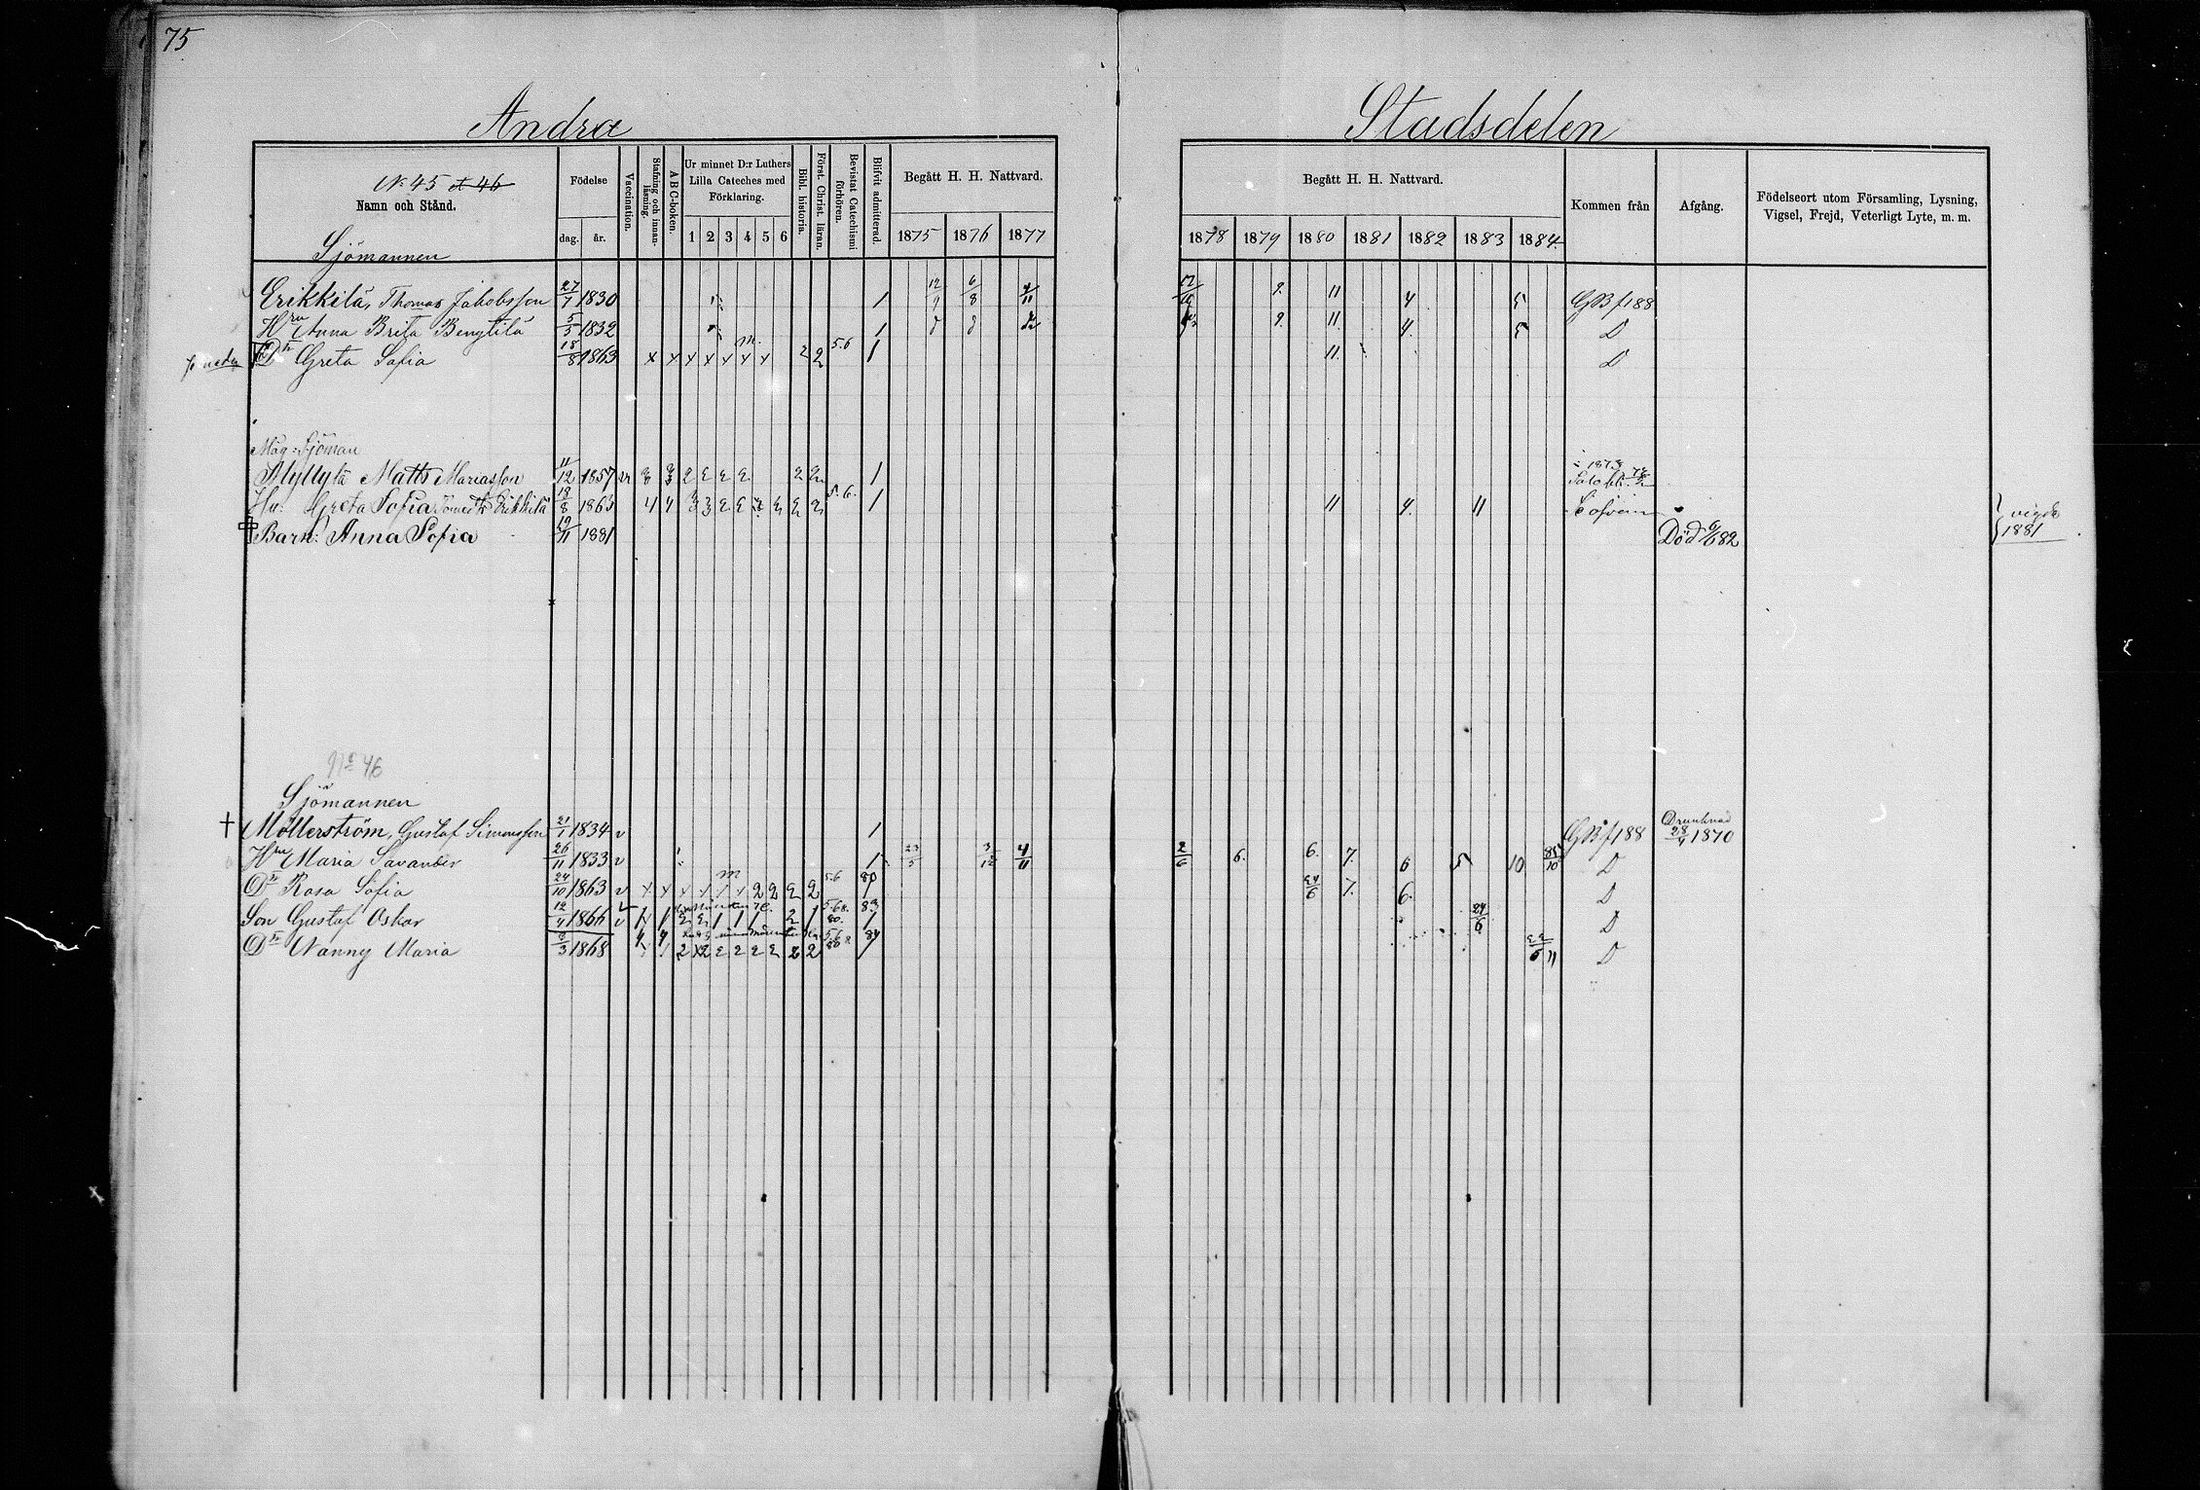 75
Andra Stadsdelen
No 45 et 46
Namn och Stånd.
Födelse
dag. år.
Vaccination.
Stafning och innanläsning.
A B C-boken.
Ur minnet D:r Luthers Lilla Cateches med Förklaring.
1 2 3 4 5 6
Bibl. historia.
Först. Christ. läran.
Bevistat Catechismi förhören.
Blifvit admitterad.
Begått H. H. Nattvard.
1875 1876 1877
Begått H. H. Nattvard.
1878 1879 1880 1881 1882 1883 1884
Kommen från
Afgång.
Födelseort utom Församling, Lysning, Vigsel, Frejd, Veterligt Lyte, m. m.
Sjömannen
Erikkilä, Thomas Jakobsson 27/1 1830 1 12/9 6/8 4/11 9. 11 4 5 GB f 188
Hru Anna Brita Bengtilä 5/5 1832 1 9. 11. 4. 5 D
Dr Greta Sofia 18/8 1863 x x x x x x x 2 2 5.6 1 11. D
Måg: Sjöman
Myllylä Matts Mariasson 11/12 1857 1
Hu: Greta Sofia Erikkilä 18/8 1863 5.6. 1 11 4. 11
Barn: Anna Sofia 19/11 1881 Död 6/6 82
vigde
1881
No 46
Sjömannen
† Möllerström, Gustaf Simonsson 21/1 1834 v 1 GB f 188 Drunknad 28/4 1870
Hru Maria Savander 26/11 1833 v 1 23/5 3/12 4/11 2/6 6. 6. 7. 6 5 10 85/10 D
Dr Rosa Sofia 24/10 1863 v 2 2 2 2 5.6 80 1 24/6 7. 6. D
Son Gustaf Oskar 12/4 1866 v 83 1 24/6 D
Dr Nanny Maria 8/3 1868 84 1 11 D